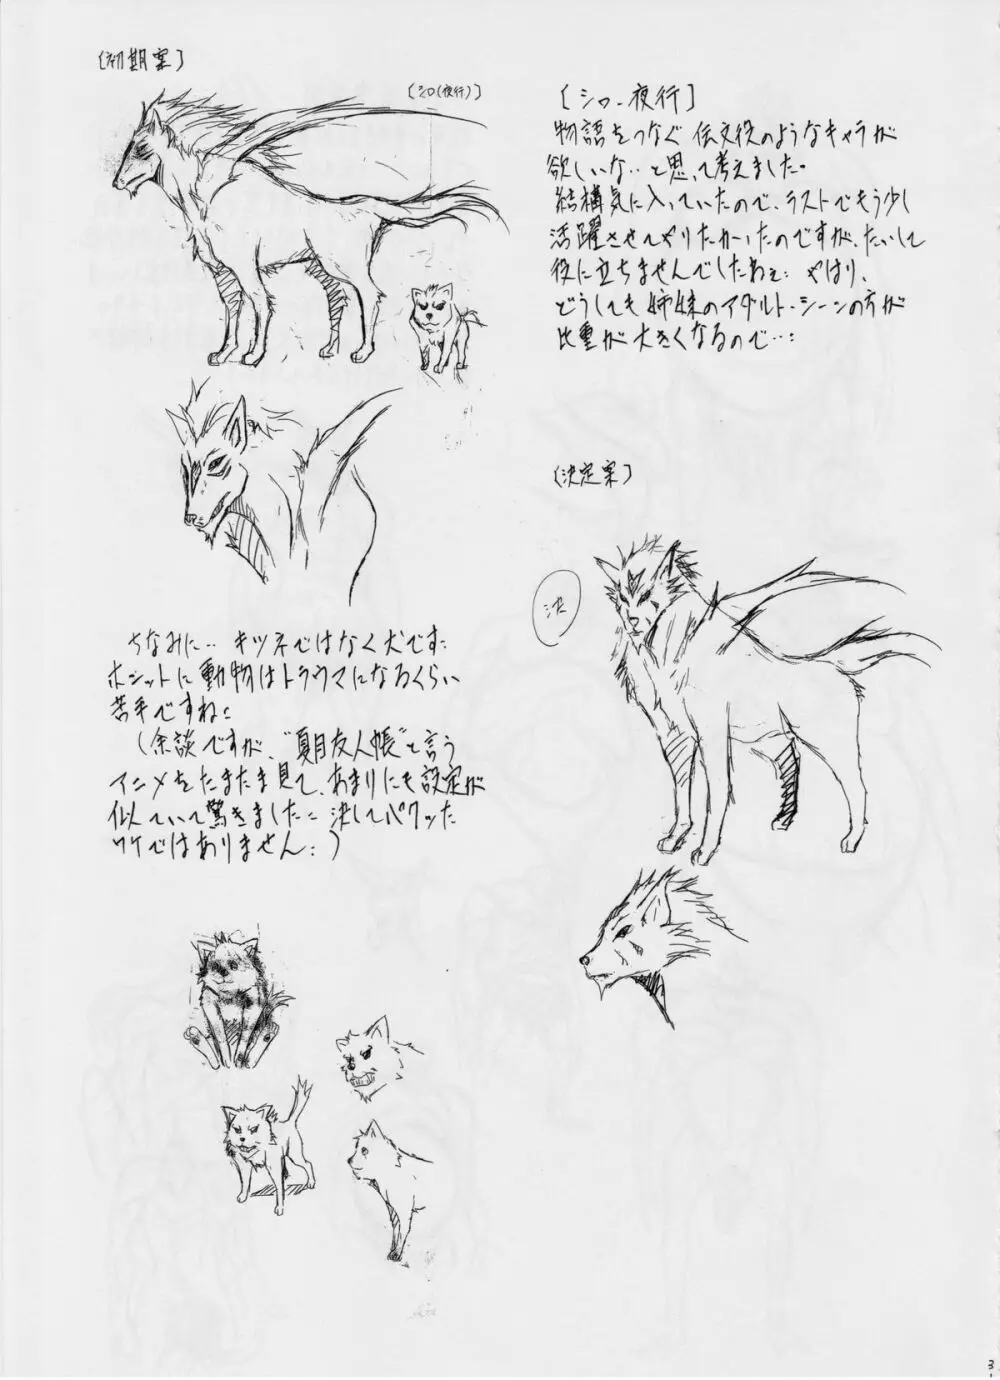 [初期案]
[シロ(夜行)]
[シロ-夜行]
物語をつなぐ 伝文役のようなキャラが
欲しいな‥と思って考えました。
結構気に入っていたので、ラストでもう少し
活躍させてやりたかったのですが、たいして
役に立ちませんでしたねぇ: やはり、
どうしても姉妹のアダルト・シーンの方が
比重が大きくなるので…:
ちなみに‥ キツネではなく犬です:
ホントに動物はトラウマになるくらい
苦手ですね:
(余談ですが、"夏目友人帳"と言う
アニメをたまたま見て、あまりにも設定が
似ていて驚きました: 決してパクッた
ワケではありません:)
[決定案]
決
3